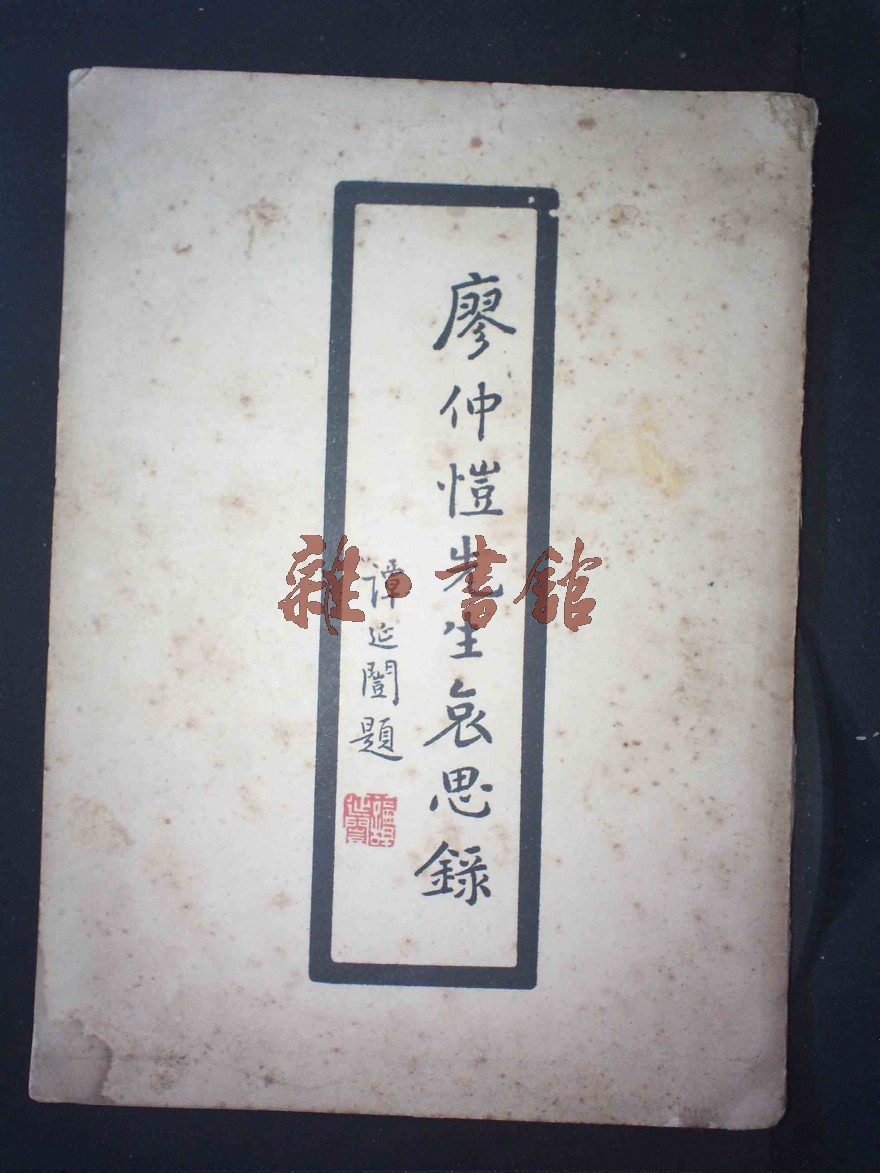 廖仲愷先生哀思錄
譚延闓題
譚延闓
雜·書館